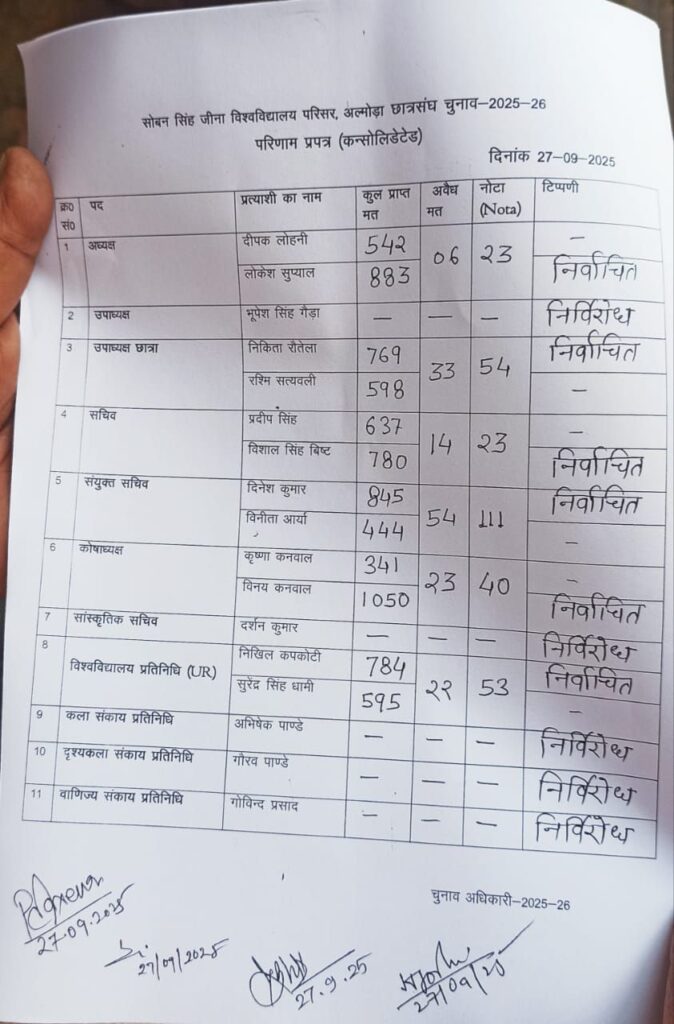 सोबन सिंह जीना विश्वविद्यालय परिसर, अल्मोड़ा छात्रसंघ चुनाव–2025-26
परिणाम प्रपत्र (कन्सोलिडेटेड)
दिनांक 27-09-2025
क्र० सं० पद प्रत्याशी का नाम कुल प्राप्त मत अवैध मत नोटा (Nota) टिप्पणी
1 अध्यक्ष दीपक लोहनी 542 06 23 –
लोकेश सुप्याल 883 निर्वाचित
2 उपाध्यक्ष भूपेश सिंह गैड़ा – – – निर्विरोध
3 उपाध्यक्ष छात्रा निकिता रौतेला 769 33 54 निर्वाचित
रश्मि सत्यवली 598 –
4 सचिव प्रदीप सिंह 637 14 23 –
विशाल सिंह बिष्ट 780 निर्वाचित
5 संयुक्त सचिव दिनेश कुमार 845 54 111 निर्वाचित
विनीता आर्या 444 –
6 कोषाध्यक्ष कृष्णा कनवाल 341 २3 40 –
विनय कनवाल 1050 निर्वाचित
7 सांस्कृतिक सचिव दर्शन कुमार – – – निर्विरोध
8 विश्वविद्यालय प्रतिनिधि (UR) निखिल कपकोटी 784 २२ 53 निर्वाचित
सुरेन्द्र सिंह धामी 595 –
9 कला संकाय प्रतिनिधि अभिषेक पाण्डे – – – निर्विरोध
10 दृश्यकला संकाय प्रतिनिधि गौरव पाण्डे – – – निर्विरोध
11 वाणिज्य संकाय प्रतिनिधि गोविन्द प्रसाद – – – निर्विरोध
चुनाव अधिकारी-2025-26
27-09-2025
27/09/2025
27.9.25
27/09/25